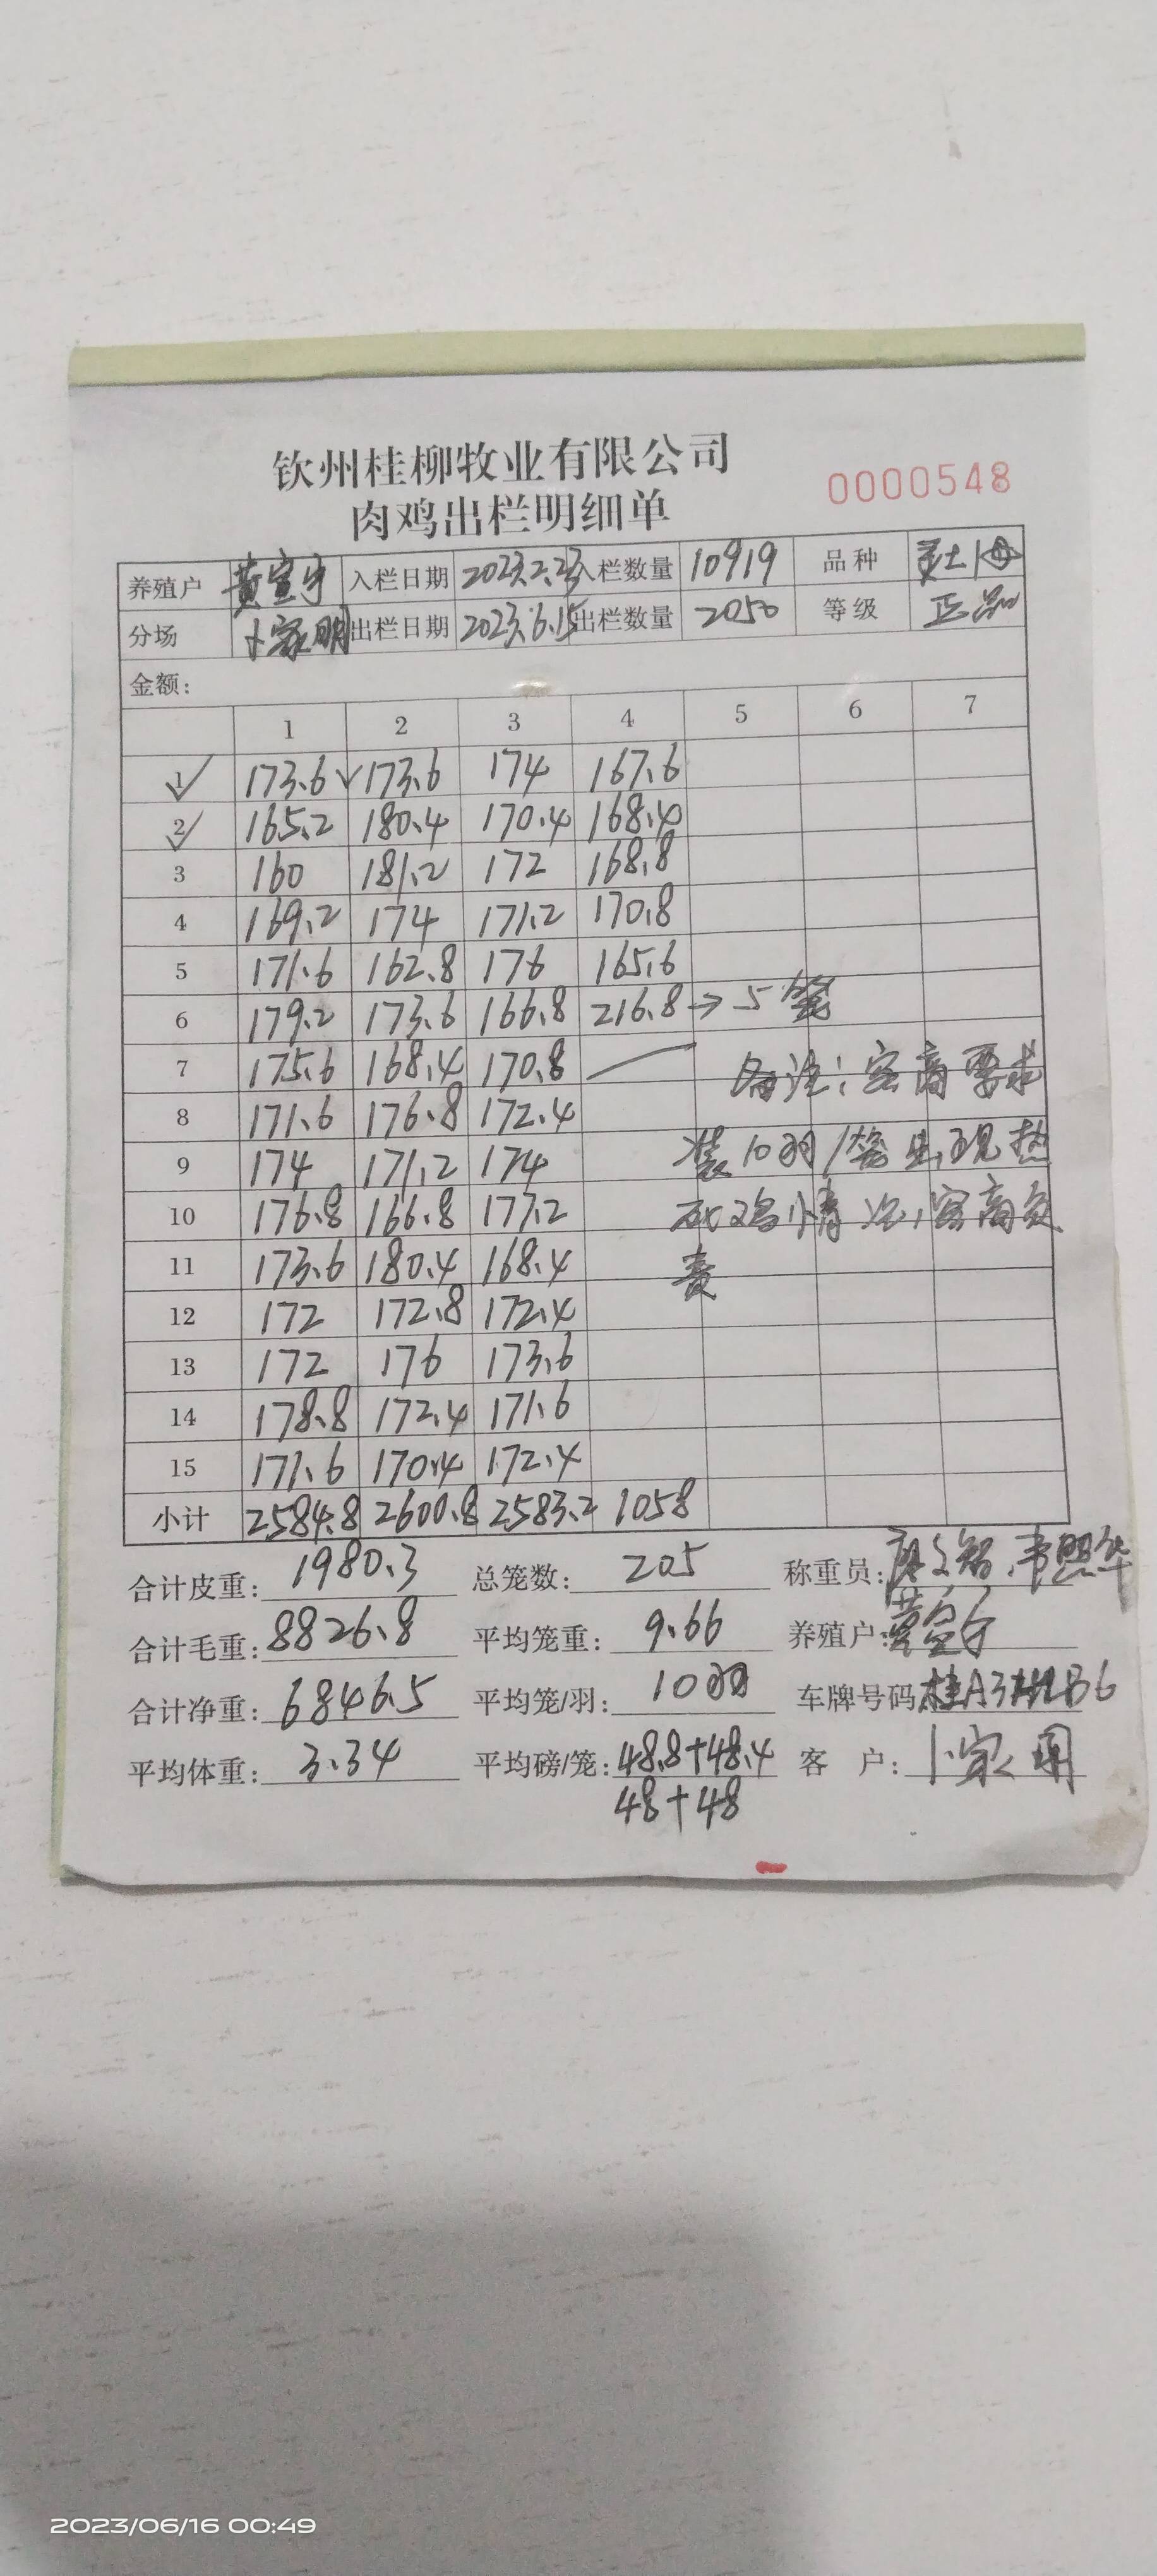 钦州桂柳牧业有限公司
肉鸡出栏明细单
0000548
养殖户 黄宣宇 入栏日期 2023.2.23 入栏数量 10919 品种
分场 卜家明 出栏日期 2023.6.15 出栏数量 2050 等级 正品
金额:
1 2 3 4 5 6 7
1 173.6 173.6 174 167.6
2 165.2 180.4 170.4 168.4
3 160 181.2 172 168.8
4 169.2 174 171.2 170.8
5 171.6 162.8 176 165.6
6 179.2 173.6 166.8 216.8→5笼
7 175.6 168.4 170.8 备注:客商要求
8 171.6 176.8 172.4
9 174 171.2 174 装10羽/笼出现热
10 176.8 166.8 177.2 死鸡情况,客商负
11 173.6 180.4 168.4 责
12 172 172.8 172.4
13 172 176 173.6
14 178.8 172.4 171.6
15 171.6 170.4 172.4
小计 2584.8 2600.8 2583.2 1058
合计皮重: 1980.3 总笼数: 205 称重员:
合计毛重: 8826.8 平均笼重: 9.66 养殖户:
合计净重: 6846.5 平均笼/羽: 10羽 车牌号码
平均体重: 3.34 平均磅/笼: 48.8+48.4 客 户: 卜家明
48+48
2023/06/16 00:49